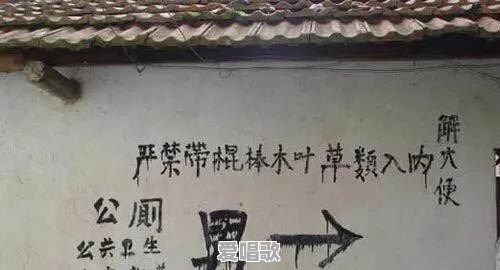 严禁带棍棒木叶草类入内
解大便
公厕
公共卫生
男
爱唱歌